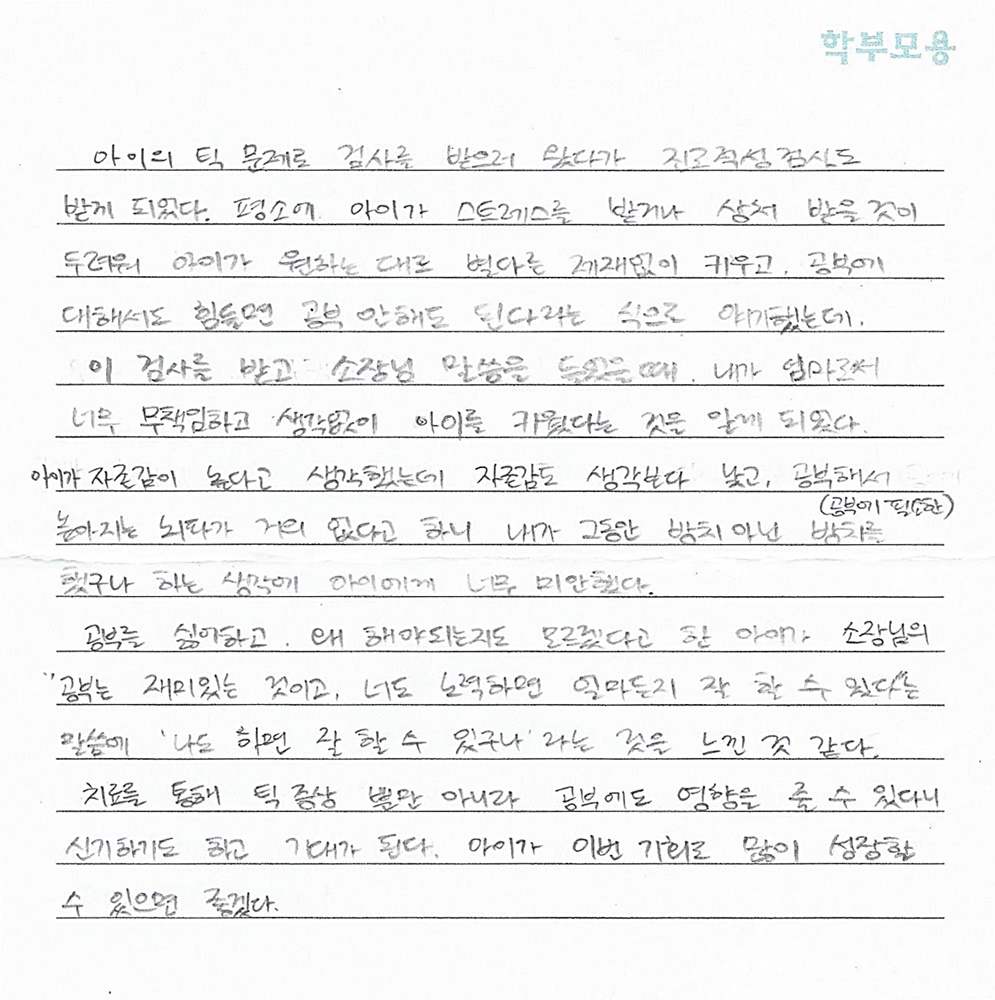 학부모용
아이의 틱 문제로 검사를 받으러 왔다가 진로적성검사도
받게 되었다. 평소에 아이가 스트레스를 받거나 상처 받을 것이
두려워 아이가 원하는 대로 별다른 제재없이 키우고, 공부에
대해서도 힘들면 공부 안해도 된다라는 식으로 얘기했는데,
이 검사를 받고 소장님 말씀을 들었을 때, 내가 엄마로써
너무 무책임하고 생각없이 아이를 키웠다는 것을 알게 되었다.
아이가 자존감이 높다고 생각했는데 자존감도 생각보다 낮고, 공부해서
(공부에 필요한)
높아지는 뇌파가 거의 없다고 하니 내가 그동안 방치 아닌 방치를
했구나 하는 생각에 아이에게 너무 미안했다.
공부를 싫어하고, 왜 해야되는지도 모르겠다고 한 아이가 소장님의
"공부는 재미있는 것이고, 너도 노력하면 얼마든지 잘 할 수 있다"는
말씀에 '나도 하면 잘 할 수 있구나' 라는 것을 느낀 것 같다.
치료를 통해 틱 증상 뿐만 아니라 공부에도 영향을 줄 수 있다니
신기하기도 하고 기대가 된다. 아이가 이번 기회로 많이 성장할
수 있으면 좋겠다.